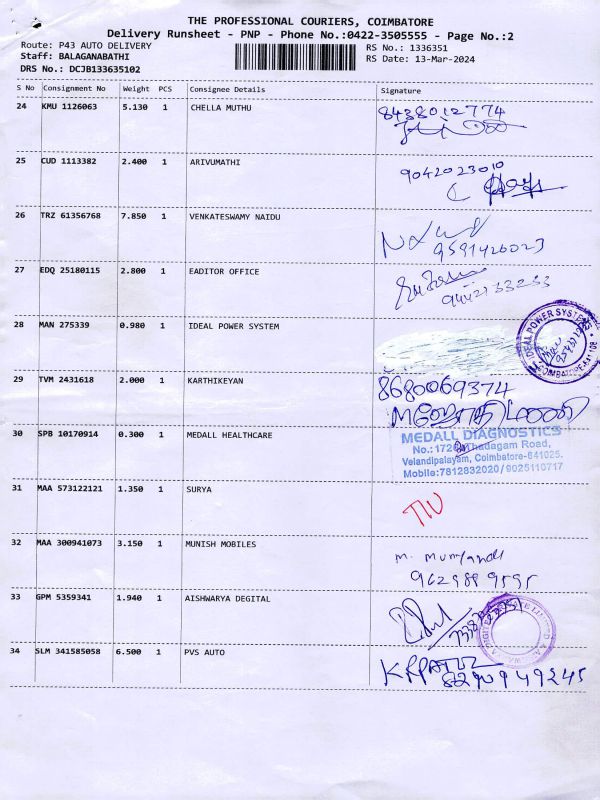 THE PROFESSIONAL COURIERS, COIMBATORE
Delivery Runsheet - PNP - Phone No.:0422-3505555 - Page No.:2
Route: P43 AUTO DELIVERY
RS No.: 1336351
Staff: BALAGANABATHI
RS Date: 13-Mar-2024
DRS No.: DCJB133635102
S No Consignment No Weight PCS Consignee Details Signature
24 KMU 1126063 5.130 1 CHELLA MUTHU 8438012774
25 CUD 1113382 2.400 1 ARIVUMATHI 9042023010
26 TRZ 61356768 7.850 1 VENKATESWAMY NAIDU
9591426023
27 EDQ 25180115 2.800 1 EADITOR OFFICE
28 MAN 275339 0.980 1 IDEAL POWER SYSTEM
IDEAL POWER SYSTEMS
29 TVM 2431618 2.000 1 KARTHIKEYAN 8680069374
30 SPB 10170914 0.300 1 MEDALL HEALTHCARE
MEDALL DIAGNOSTICS
Thadagam Road,
Velandipalayam, Coimbatore-641025.
Mobile:7812832020/9025110717
31 MAA 573122121 1.350 1 SURYA
32 MAA 300941073 3.150 1 MUNISH MOBILES
9629889595
33 GPM 5359341 1.940 1 AISHWARYA DEGITAL
34 SLM 341585058 6.500 1 PVS AUTO
8290949245